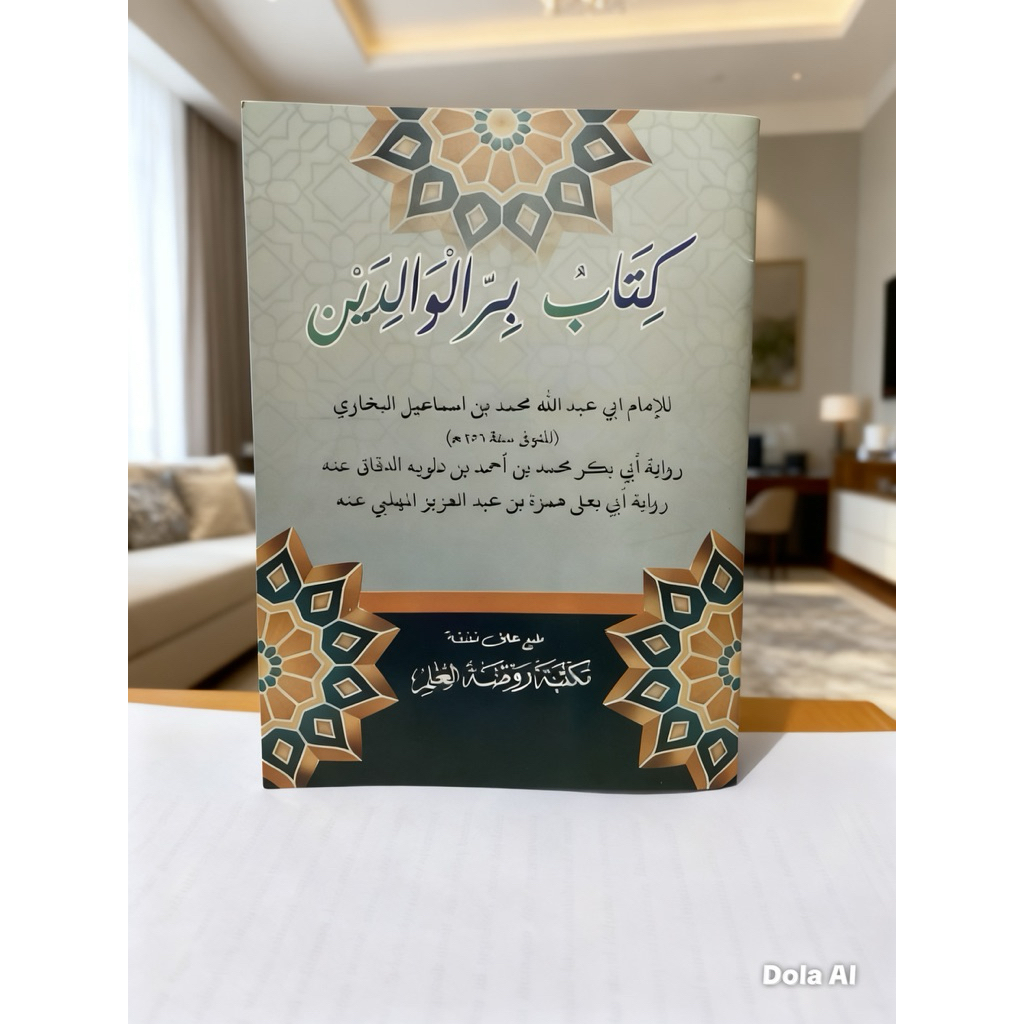 كِتَابُ بِرِّ الْوَالِدَيْن
للإمام ابي عبد الله محمد بن اسماعيل البخاري
(المتوفى سنة ٢٥٦ هـ)
رواية أبي بكر محمد بن أحمد بن دلويه الدقاق عنه
رواية أبي يعلى حمزة بن عبد العزيز المهلبي عنه
طبع على نفقة
مَكْتَبَة رَوْضَة العُلِم
Dola AI